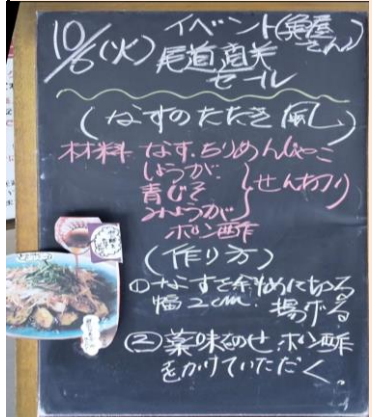 10/6(火) イベント(魚屋さん)
尾道直送
セール
(なすのたたき風)
材料 なす、ちりめんじゃこ
しょうが
青じそ
みょうが
せん切り
ポン酢
(作り方)
①なすを斜めに切る
幅2cm. 揚げる
②薬味をのせ、ポン酢
をかけていただく。